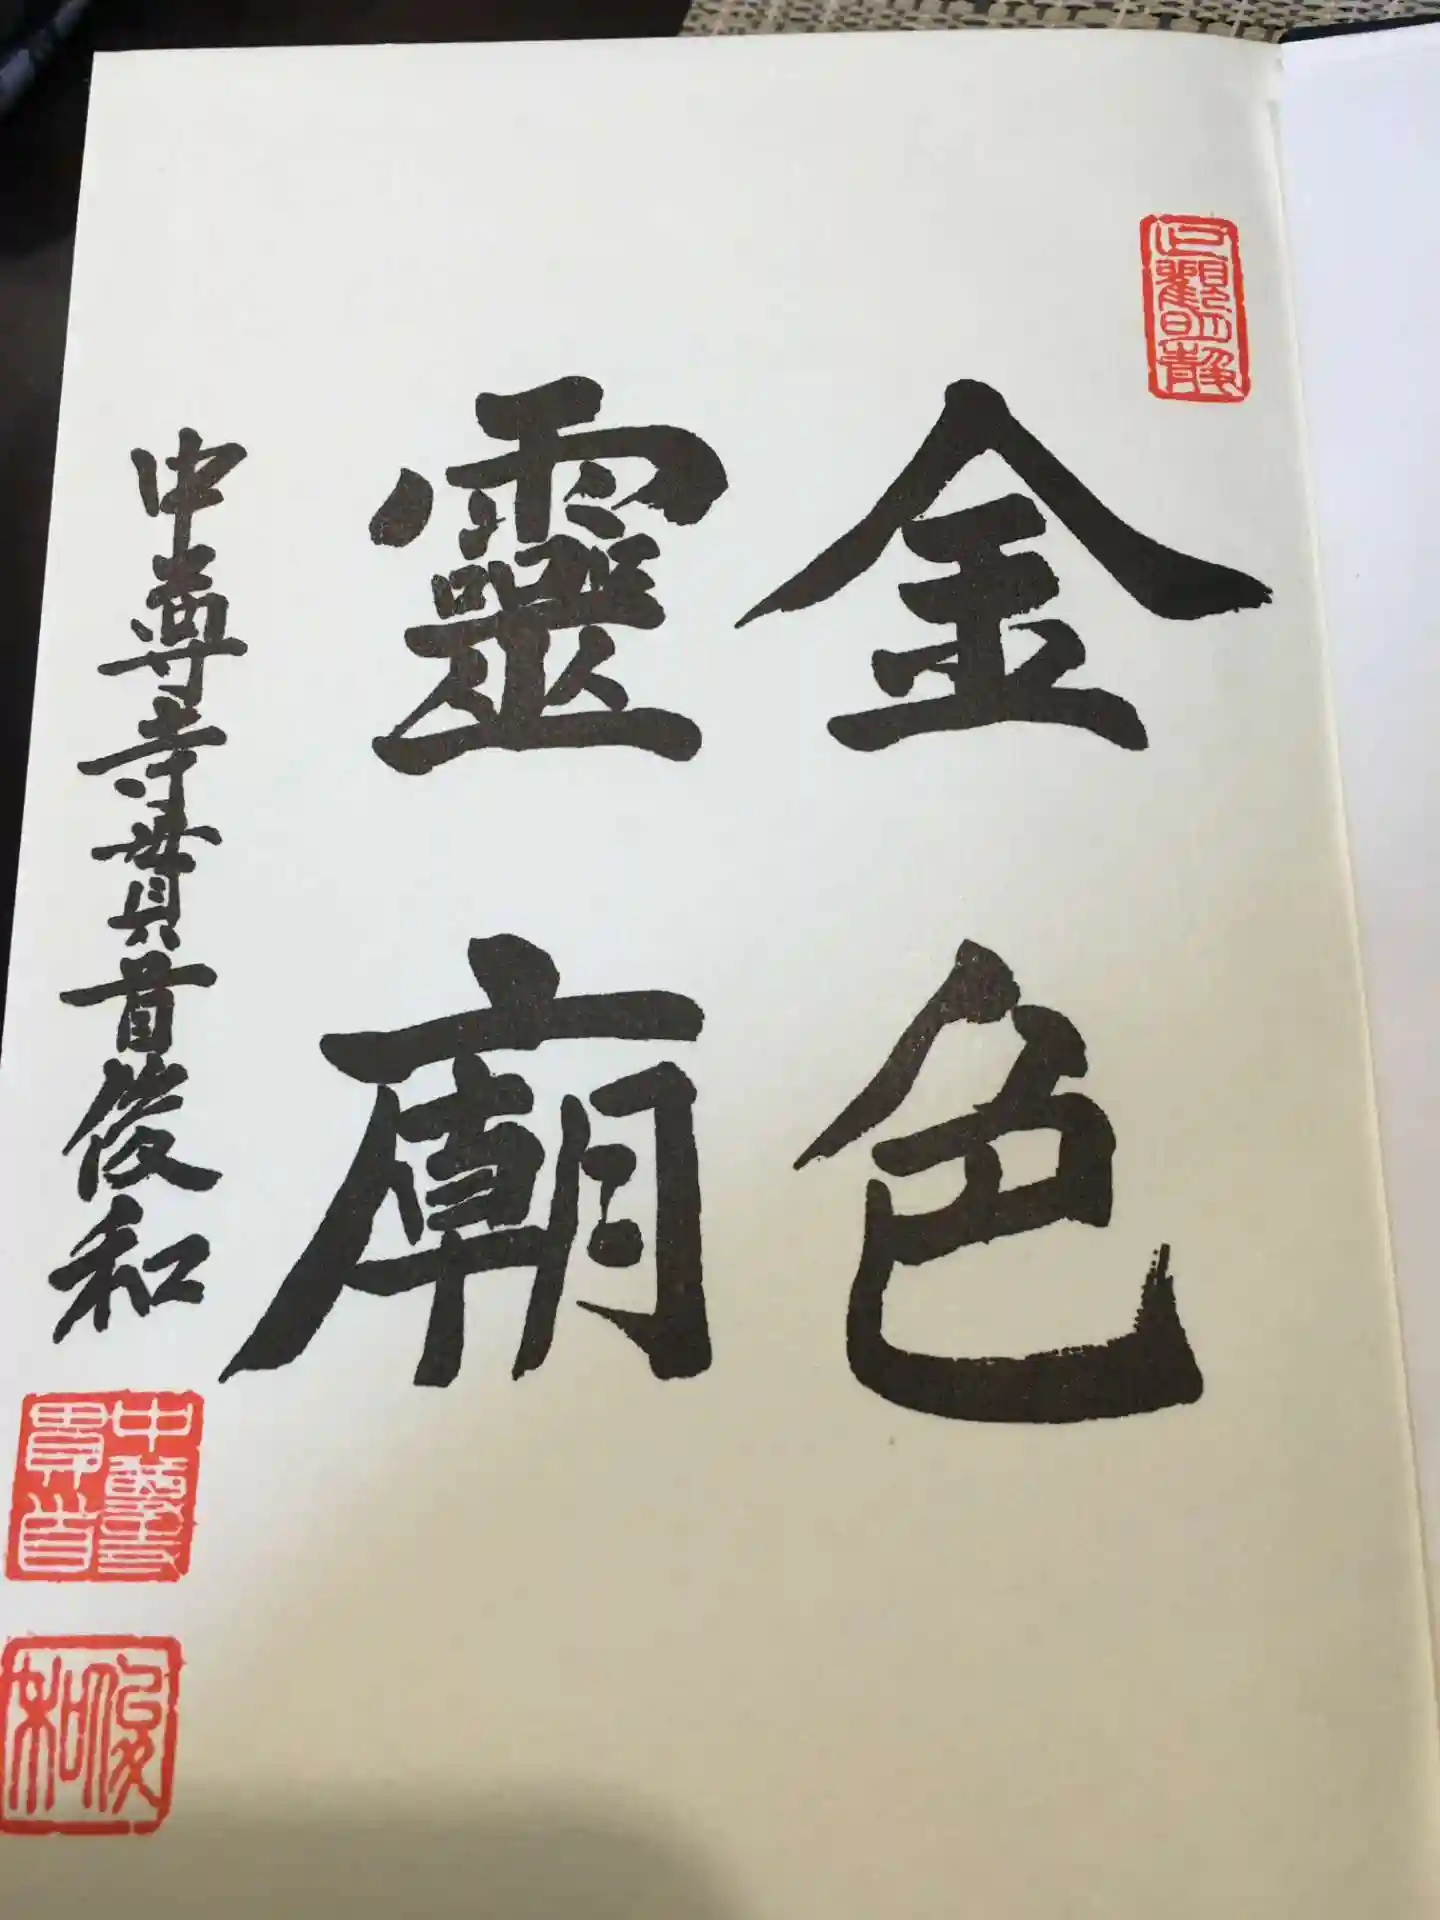 止觀明静
金色
靈廟
中尊寺貫首俊和
中尊寺貫首
俊和